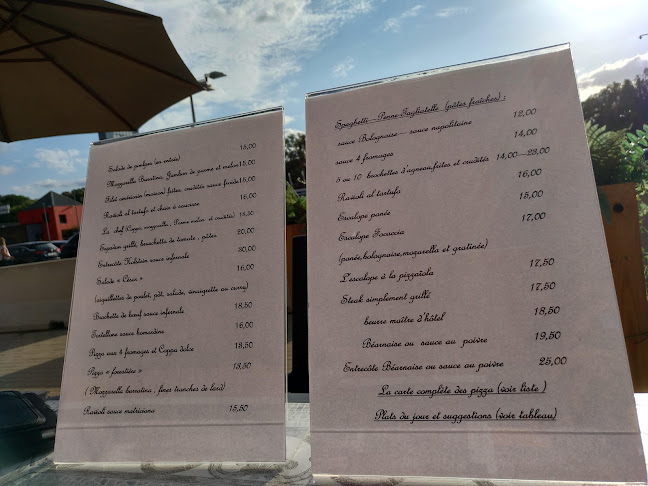 Salade de jambon (en entrée) 15,00
Mozzarella Burratina, Jambon de parme et melon 15,00
Filet américain (maison) frites, crudités sauce froide 15,00
Ravioli al tartufo et chair 16,00
La chef (Coppa, mozzarella, Parme melon et crudités) 18,50
Espadon grillé, brochette de tomate, pâtes 20,00
Entrecôte sauce infernale 30,00
Salade « César » 16,00
(aiguillettes de poulet, salade, vinaigrette au curry)
Brochette de bœuf sauce infernale 18,50
Tortellino sauce 16,00
Pizza aux 4 fromages et Coppa dolce 18,50
Pizza « forestière » 18,50
( Mozzarella burratina, fines tranches de lard)
Ravioli sauce matriciana 15,50
Spaghetti – Penne-Tagliatelle (pâtes fraîches) :
sauce Bolognaise – sauce napolitaine 12,00
sauce 4 fromages 14,00
5 ou 10 brochettes d'agneau,frites et crudités 14,00—23,00
Ravioli al tartufo 16,00
Escalope panée 15,00
Escalope Focaccia 17,00
(panée,bolognaise,mozarella et gratinée)
L'escalope à la pizzaïola 17,50
Steak simplement grillé 17,50
beurre maître d'hôtel 18,50
Béarnaise ou sauce au poivre 19,50
Entrecôte Béarnaise ou sauce au poivre 25,00
La carte complète des pizza (voir liste )
Plats du jour et suggestions (voir tableau)